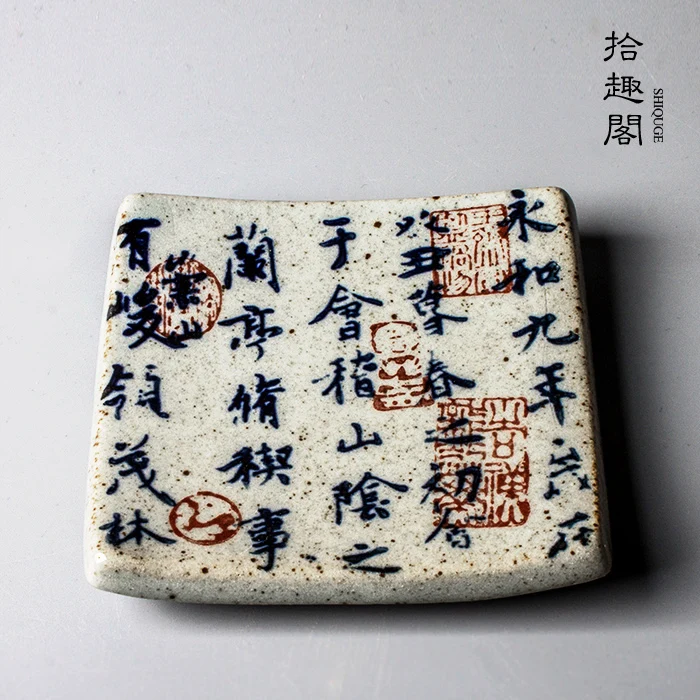 拾趣閣
SHIQUGE
永和九年歲在
癸丑暮春之初會
于會稽山陰之
蘭亭脩稧事
有峻領茂林
崇山